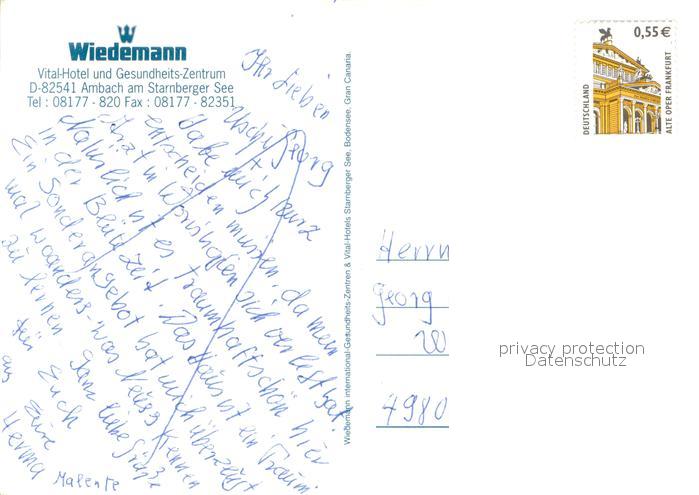 Wiedemann
Vital-Hotel und Gesundheits-Zentrum
D-82541 Ambach am Starnberger See
Tel : 08177 - 820 Fax : 08177 - 82351
Ihr Lieben
Uschi, Georg
Habe mich kurz
entscheiden müssen, da mein
Arzt in sich verlest hat.
Natürlich ist es traumhaftschön hier
in der Blütezeit. Das Haus ist ein Traum
Ein Sonderangebot hat mich überzeugt
mal woanders - was Neues kennen
zu lernen ganz liebe Grüße
für Euch
Eure
Herma
aus Malente
Wiedemann international-Gesundheits-Zentren & Vital-Hotels Starnberger See, Bodensee, Gran Canaria.
0,55 €
DEUTSCHLAND
ALTE OPER FRANKFURT
Herrn
Georg
W
4980
privacy protection
Datenschutz